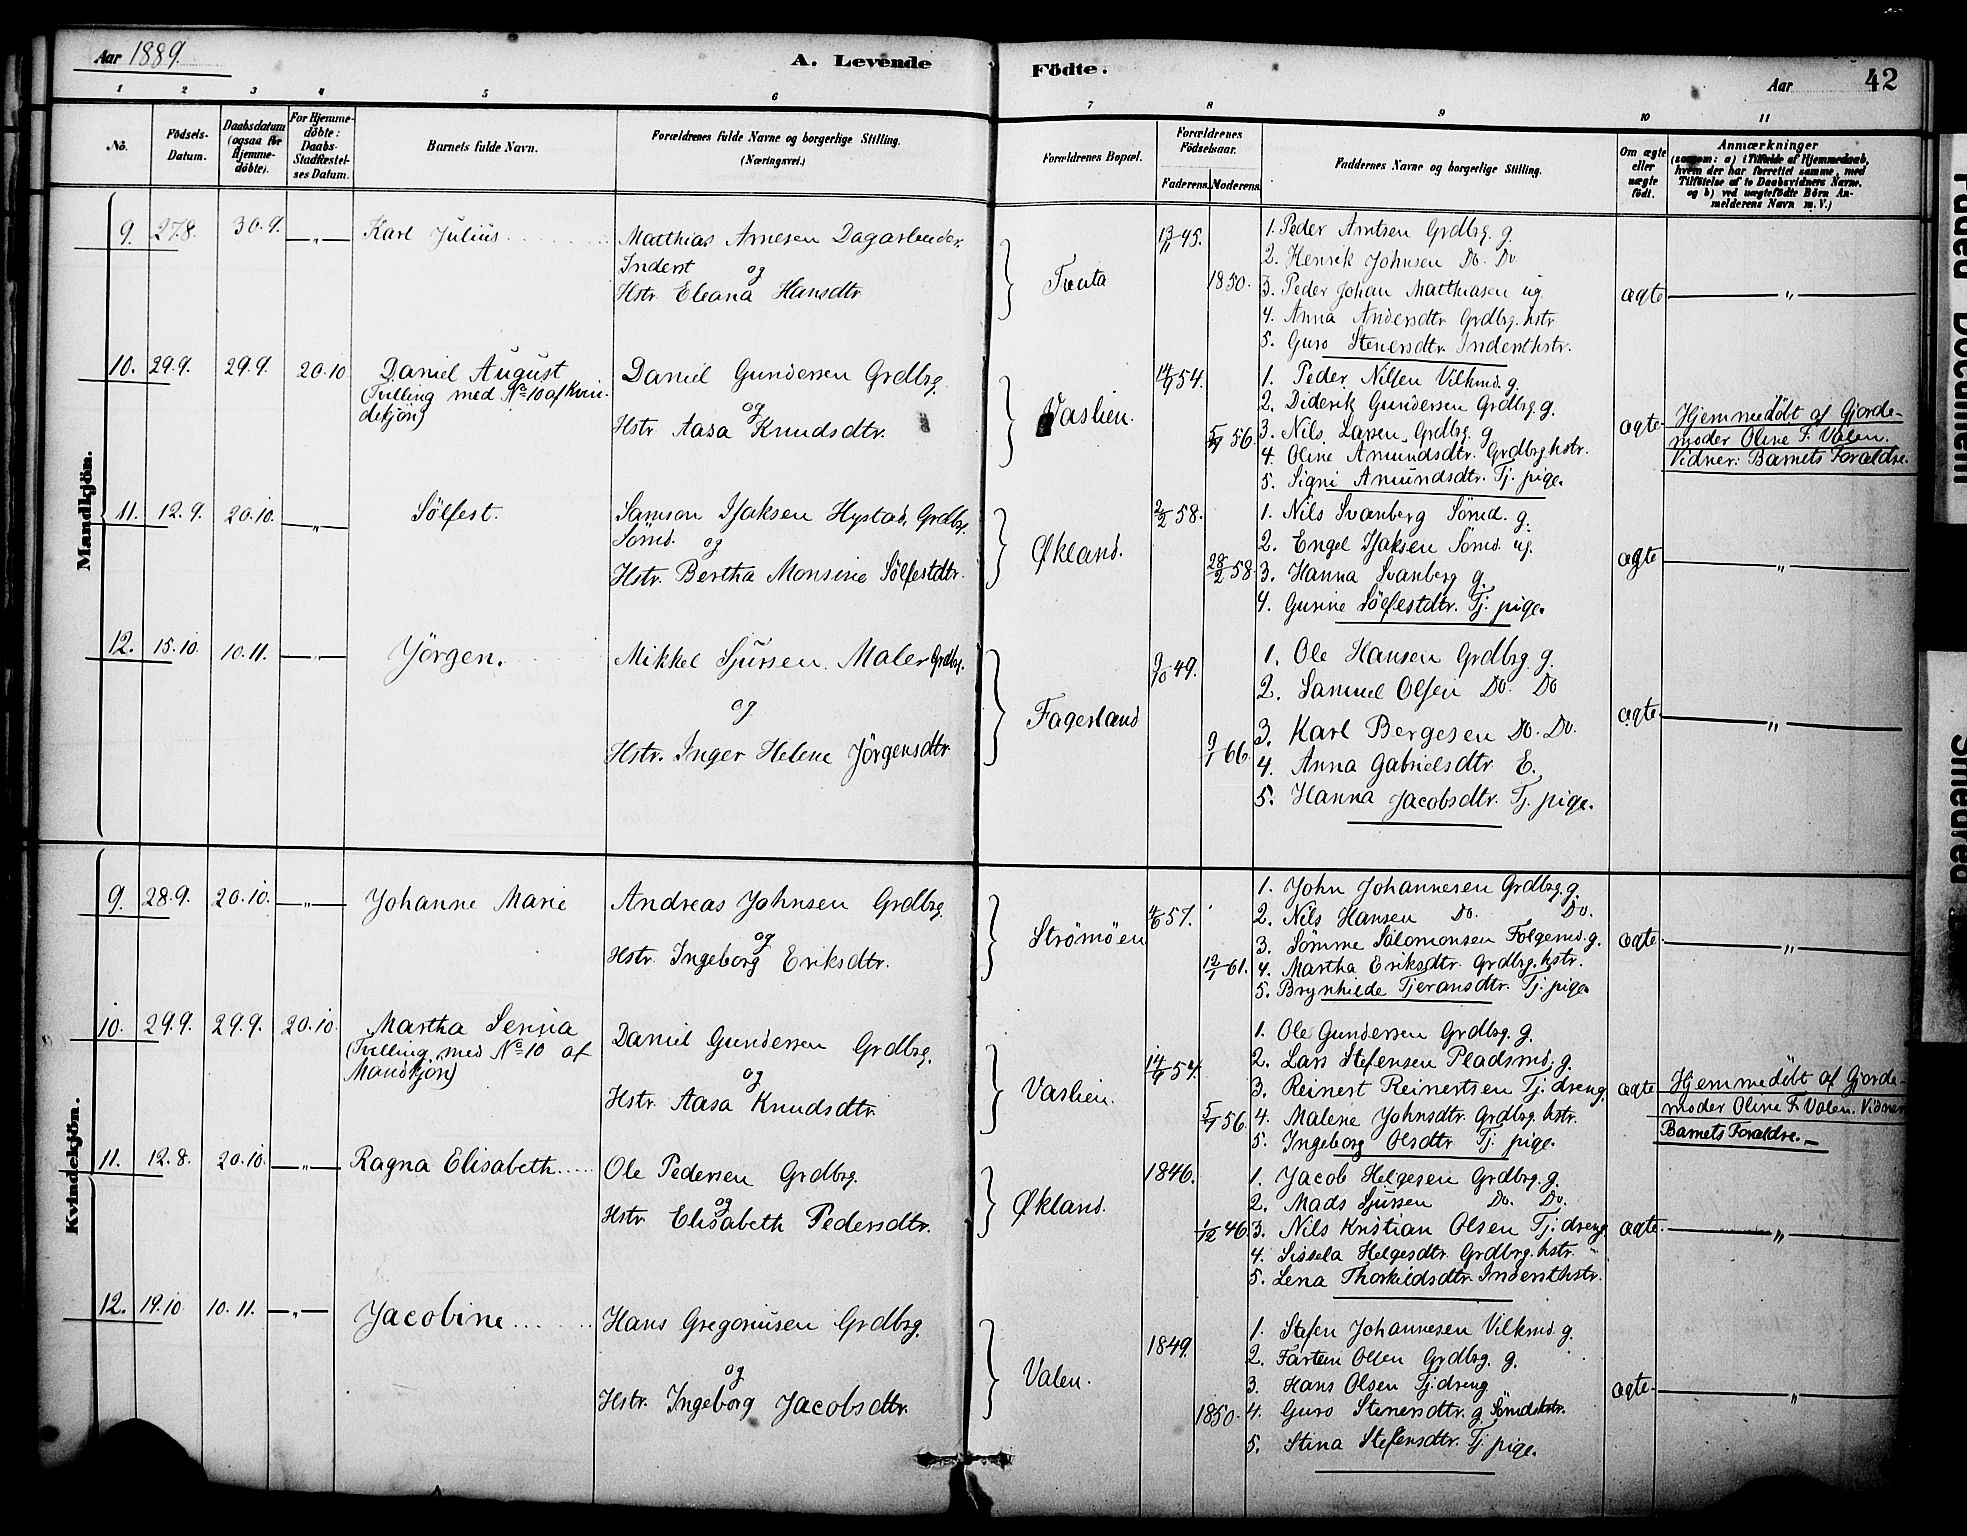 Aar 1889.
A. Levende
Födte.
Aar
42
1 2 3 4 5 6 7 8 9 10 11
No.
Födsels-
Datum.
Daabsdatum
(ogsaa for
Hjemme-
döbte).
For Hjemme-
döbte:
Daabs-
Stadfæstel-
ses Datum.
Barnets fulde Navn.
Forældrenes fulde Navne og borgerlige Stilling.
(Næringsvei.)
Forældrenes Bopæl.
Forældrenes
Födselsaar.
Faderens. Moderens.
Faddernes Navne og borgerlige Stilling.
Om ægte
eller
uægte
födt.
Anmærkninger
(saasom: a) i Tilfælde af Hjemmedaab,
hvem der har forrettet samme, med
Tilföielse af to Daabsvidners Navne.
og b) ved uægtefödte Börn An-
melderens Navn m. V.)
Mandkjön.
9. 27.8. 30.9. — „ — Karl Julius
Matthias Arnesen Dagarbeider
Inderst og
Hstr. Eleana Hansdtr
13/11 45.
1850.
1. Peder Arntsen Grdbrg. g.
2. Henrik Johnsen Do. Do
3. Peder Johan Matthiasen ug.
4. Anna Andersdtr Grdbrg. hstr
5. Guro Stenersdtr. Indersthstr.
ægte — „ —
10. 29.9. 29.9. 20.10 Daniel August
(Tvilling med No 10 af Kvin-
dekjön)
Daniel Gundersen Grdbrg.
og
Hstr Aasa Knudsdtr.
Vaslien.
14/9 54.
56
1. Peder Nilsen Vilkmd. g.
2. Diderik Gundersen Grdbrg. g.
3. Nils Larsen Grdbrg. g
4. Oline Amundsdtr. Grdbrg hstr.
5. Signi Amundsdtr. Tj. pige.
ægte
Hjemmedøbt af Gjorde-
moder Oline F. Valen.
Vidner: Barnets Forældre.
11. 12.9. 20.10. — „ — Sølfest.
Samson Isaksen Hystad, Grdbrg.
Sömd. og
Hstr. Bertha Monsine Sölfestdtr.
Økland.
2/2 58.
28/2 58.
1. Nils Svanberg Sömd. g.
2. Engel Isaksen Sömd. ug.
3. Hanna Svanberg g.
4. Gurine Sölfestdtr. Tj. pige.
ægte — „ —
12. 15.10. 10.11. — „ — Jörgen.
Mikkel Sjursen Maler Grdbrg.
og
Hstr. Inger Helene Jörgensdtr.
Fagerland
9/10 49.
9/1 66.
1. Ole Hansen Grdbrg. g.
2. Samuel Olsen Do. Do
3. Karl Bergesen Do. Do.
4. Anna Gabrielsdtr E.
5. Hanna Jacobsdtr. Tj. pige.
ægte. — „ —
Kvindekjön.
9. 28.9. 20.10. — „ — Johanne Marie
Andreas Johnsen Grdbrg.
og
Hstr. Ingeborg Eriksdtr.
Strömöen
57.
12/1 61.
1. John Johannesen Grdbrg. g.
2. Nils Hansen Do. Do.
3. Sömme Salomonsen Folgemd. g.
4. Martha Eriksdtr. Grdbrg. hstr.
5. Brynhilde Tjeransdtr. Tj. pige
ægte. — „ —
10. 29.9. 29.9. 20.10. Martha Serina
(Tvilling med No 10 af
Mandkjön)
Daniel Gundersen Grdbrg.
og
Hstr. Aasa Knudsdtr.
Vaslien.
14/9 54.
56
1. Ole Gundersen Grdbrg. g.
2. Lars Stefensen Pladsmd. g.
3. Reinert Reinertsen Tj. dreng
4. Malene Johnsdtr. Grdbrg. hstr.
5. Ingeborg Olsdtr Tj. pige.
ægte
Hjemmedöbt af Gjorde-
moder Oline F. Valen. Vidner
Barnets Forældre. —
11. 12.8. 20.10. — „ — Ragna Elisabeth
Ole Pedersen Grdbrg.
og
Hstr Elisabeth Pedersdtr.
Økland.
1846.
1/12 46.
1. Jacob Helgesen Grdbrg. g.
2. Mads Sjursen Do. Do.
3. Nils Kristian Olsen Tj. dreng
4. Sissela Helgesdtr Grdbrg. hstr.
5. Lena Thorkildsdtr. Indersthstr.
ægte. — „ —
12. 19.10 10.11. — „ — Jacobine
Hans Gregoriusen Grdbrg.
og
Hstr. Ingeborg Jacobsdtr.
Valen.
1849.
1850.
1. Stefen Johannesen Vilkmd. g.
2. Fartein Olsen Grdbrg. g.
3. Hans Olsen Tj. dreng
4. Guro Stenersdtr. g. Sömdshstr.
5. Stina Stefensdtr. Tj. pige.
ægte. — „ —
Faded Document
Smeared